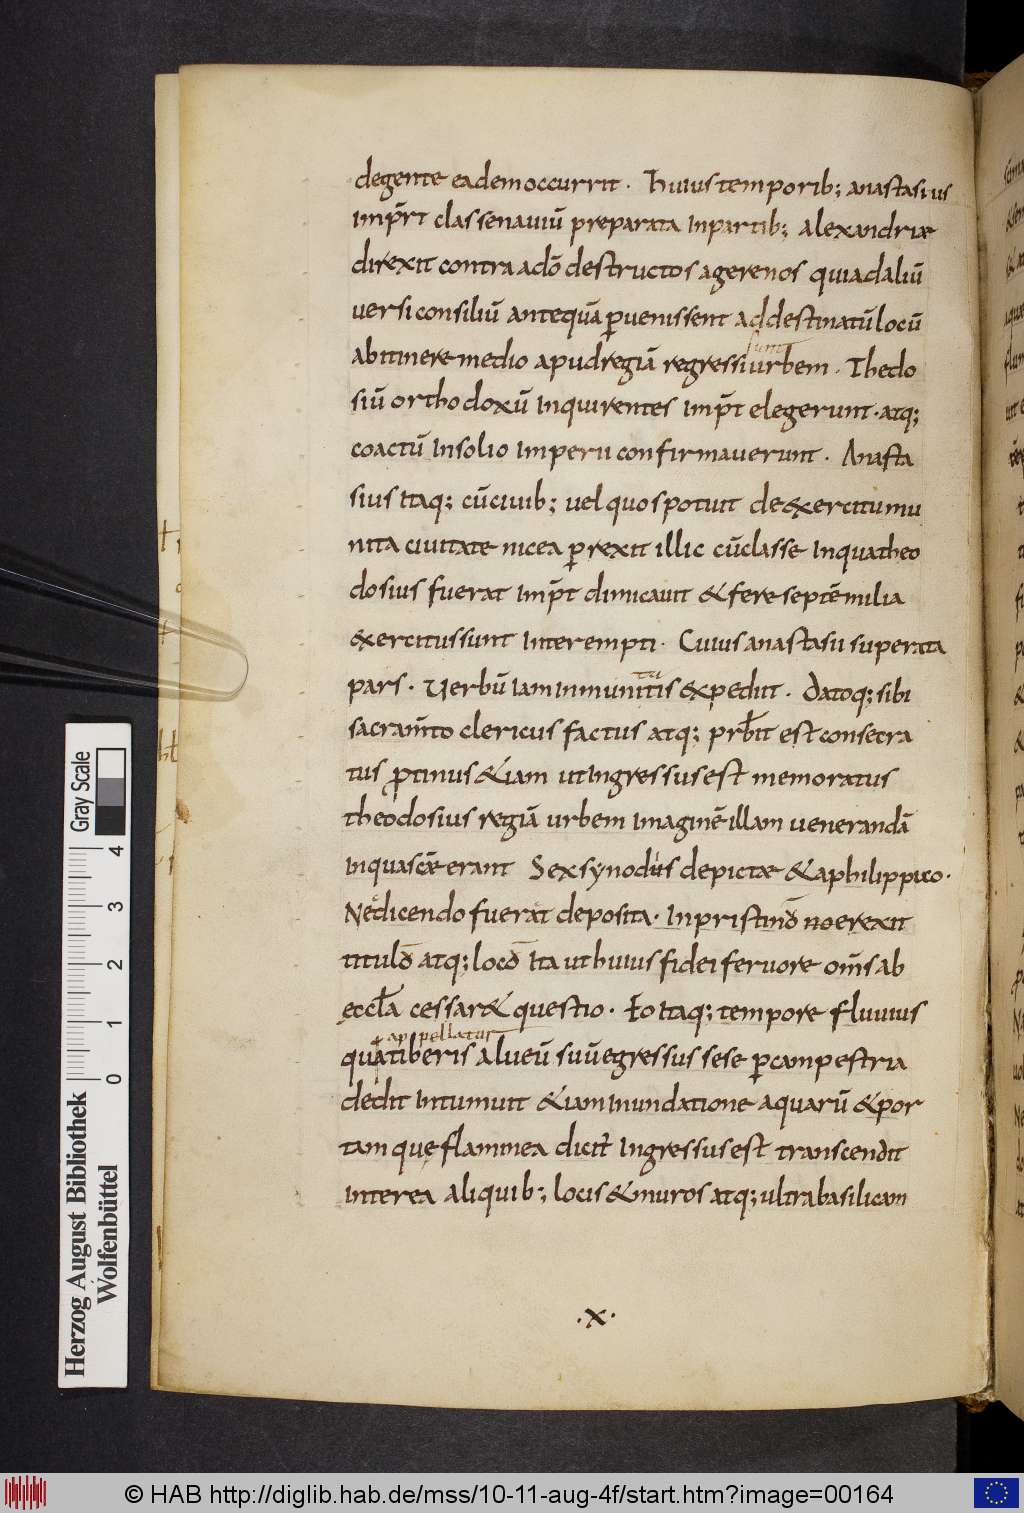 degente eadem occurrit . Huius temporib; anastasius
imp̄rt classe nauiū preparata Inpartib; alexandriæ
direxit contra adō destructos agerenos qui adaliū
uersi consiliū antequā ꝑuenissent ad destinatū locū
sunt
abitinere medio apud regiā regressi urbem . Thedo
siū orthodoxū Inquirentes Imp̄t elegerunt . atq;
coactū Insolio Imperii confirmauerunt . Anasta
sius Itaq; cū ciuib; uel quos potuit de exercitu mu
nita ciuitate nicea ꝑrexit illic cū classe Inqua theo
dosius fuerat Imp̄t dimicauit & fere septē milia
exercitus sunt Interempti . Cuius anastasii superata
tu
pars . Uerbū Iam Inmunitis expediit . Datoq; sibi
sacram̄to clericus factus atq; prb̄it est consecra
tus protinus &iam ut Ingressus est memoratus
theodosius regiā urbem Imaginē illam uenerandā
Inqua scæ erant Sex synodus depictæ & aphilippico .
Nedicendo fuerat deposita . Inpristinō no erexit
titulō atq; locō Ita ut huius fidei feruore om̄s ab
eccl̄a cessar& questio . Eo Itaq; tempore fluuius
appellatur
qua tiberis alueū suū egressus sese ꝑ campestria
dedit Intumuit &iam Inundatione aquarū & por
tam que flaminea dicit̄ Ingressus est transcendit
Interea aliquib; locis & muros atq; ultra basilicam
. x .
Herzog August Bibliothek
Wolfenbüttel
Gray Scale
0 1 2 3 4
© HAB http://diglib.hab.de/mss/10-11-aug-4f/start.htm?image=00164